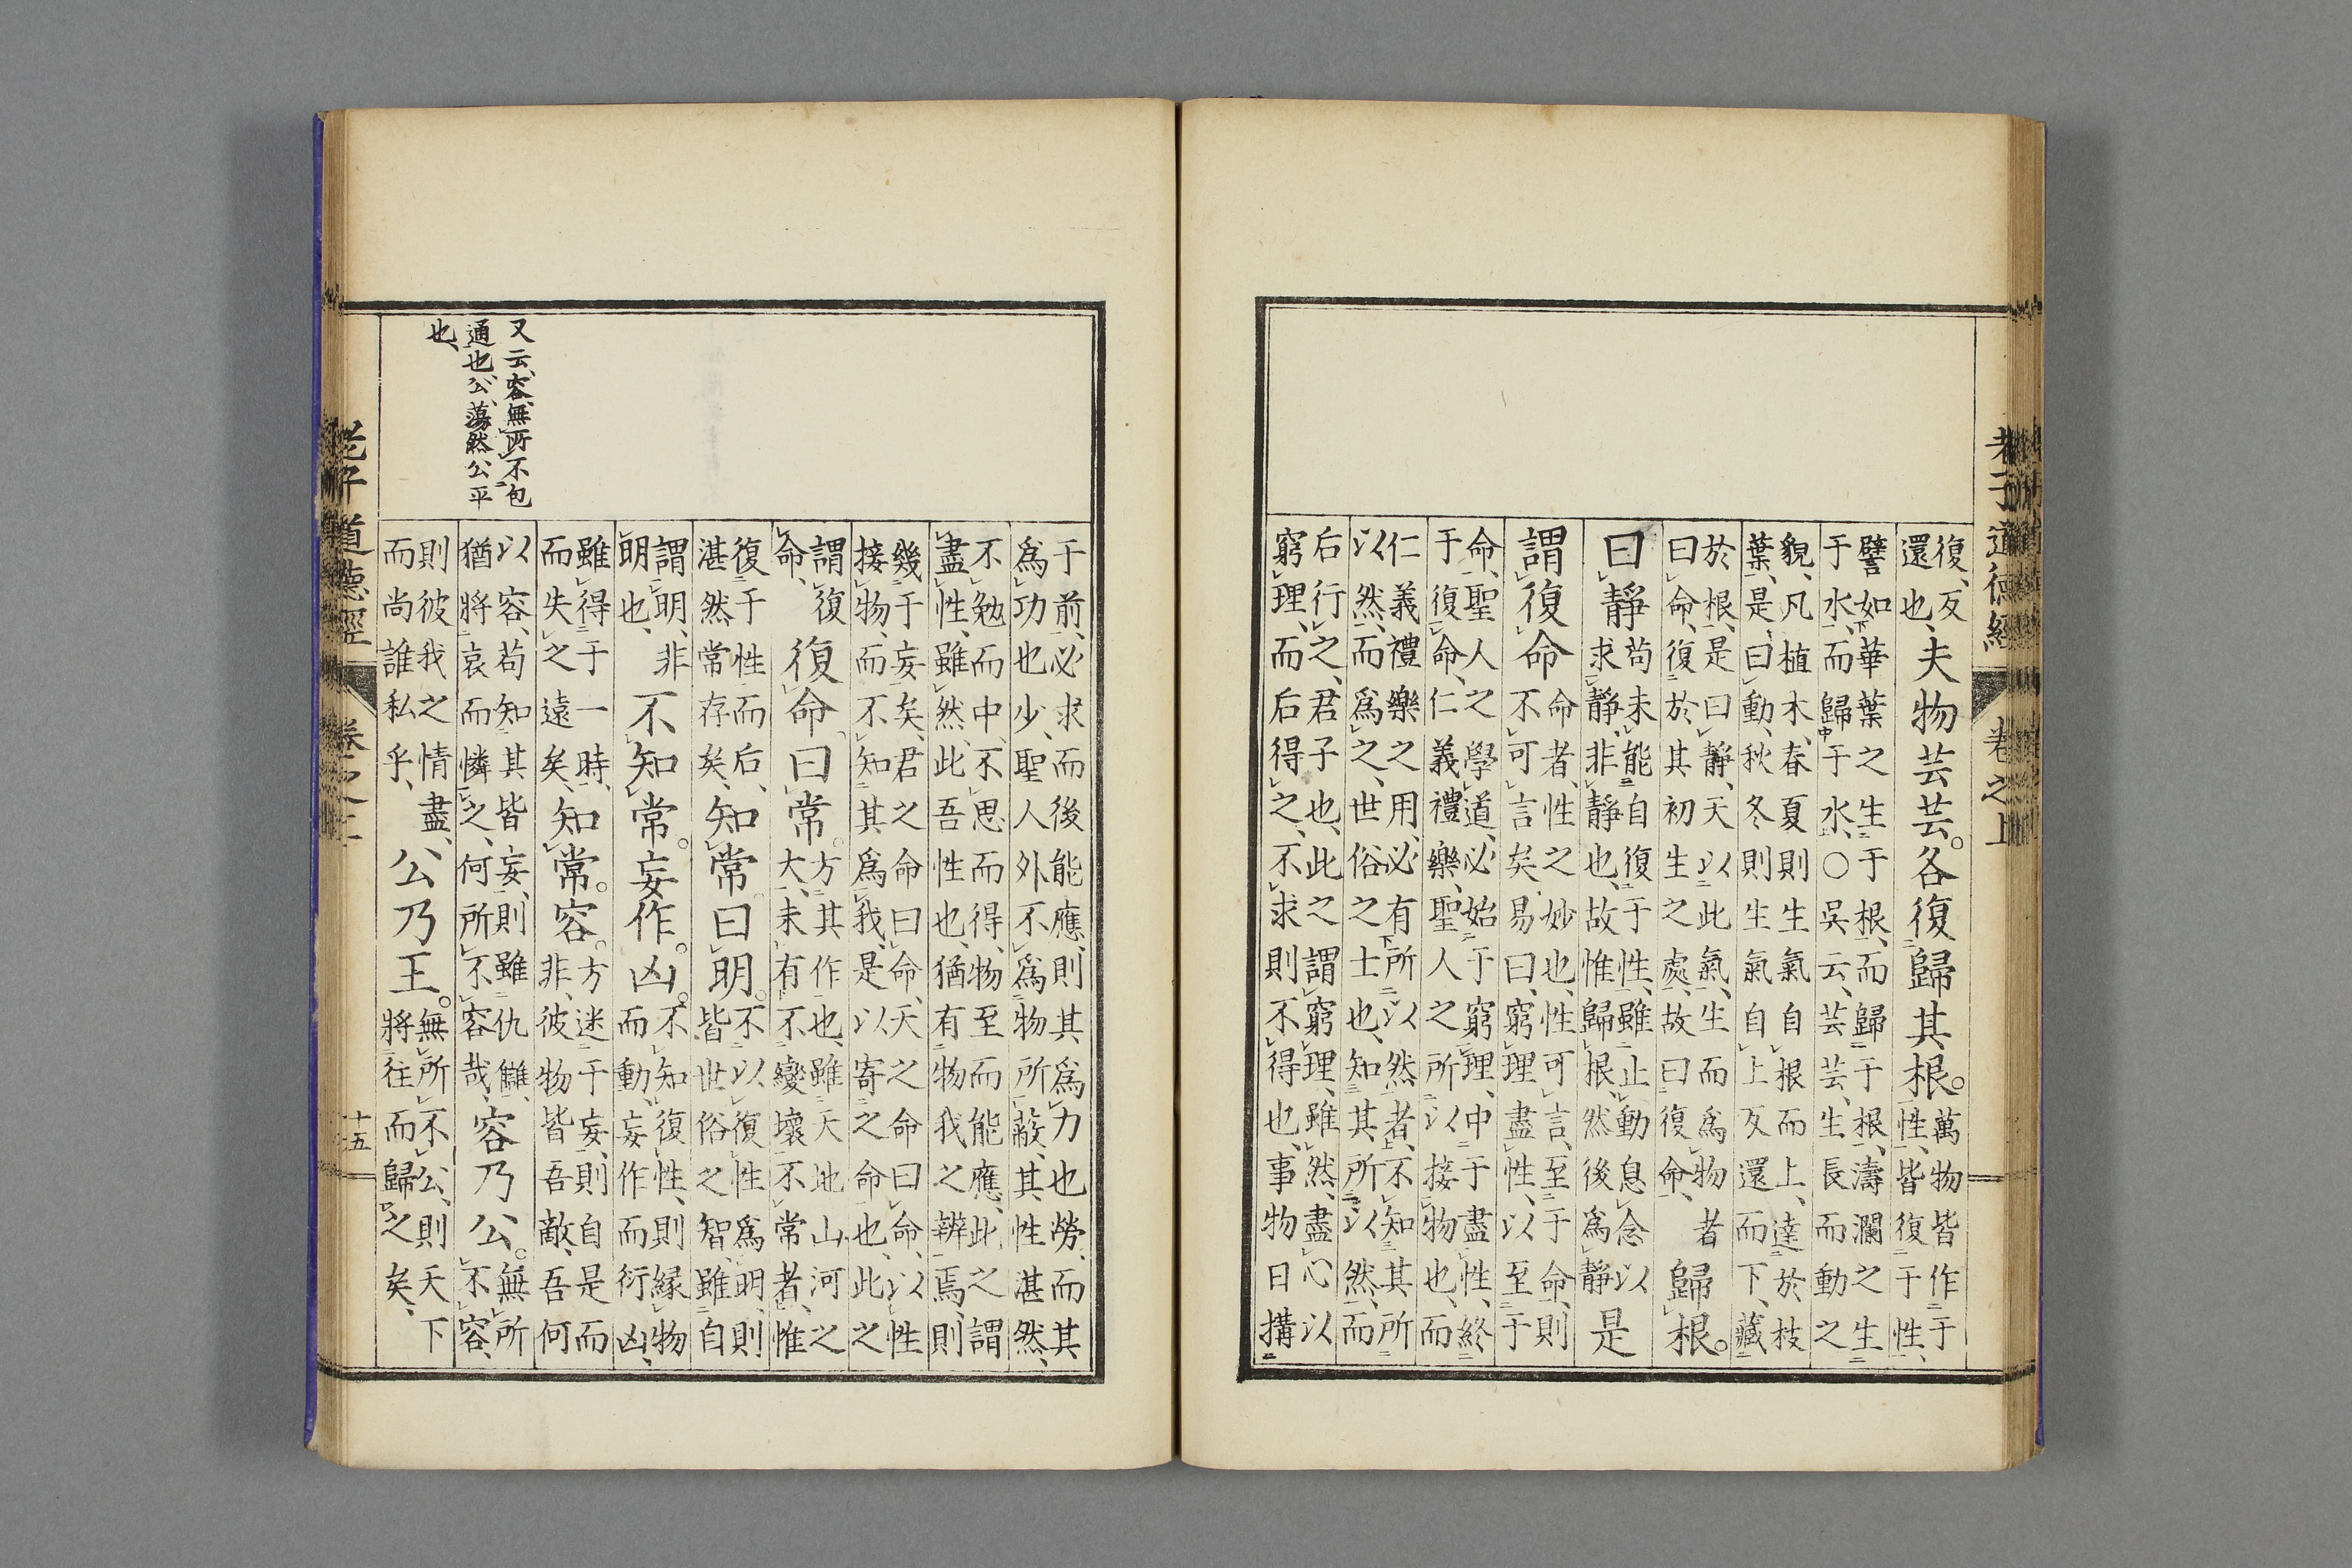 老子道德經 卷之上
復、反
還也、
夫物芸芸。各復歸其根。
萬物皆作于
性、皆復于性、
譬如華葉之生于根、而歸于根、濤瀾之生
于水、而歸于水、○吳云、芸芸、生長而動之
貌、凡植木、春夏則生氣自根而上、達於枝
葉、是曰動、秋冬則生氣自上反還而下、藏
於根、是曰靜、天以此氣、生而爲物者
曰命、復於其初生之處、故曰復命、
歸根。
曰靜
苟未能自復于性、雖止動息念以
求靜、非靜也、故惟歸根、然後爲靜
是
謂復命
命者、性之妙也、性可言、至于命、則
不可言矣、易曰、窮理盡性、以至于
命、聖人之學道、必始于窮理、中于盡性、終
于復命、仁義禮樂、聖人之所以接物也、而
仁義禮樂之用、必有所以然者、不知其所
以然、而爲之、世俗之士也、知其所以然、而
后行之、君子也、此之謂窮理、雖然、盡心以
窮理、而后得之、不求則不得也、事物日搆
于前、必求而後能應、則其爲力也勞、而其
爲功也少、聖人外不爲物所蔽、其性湛然、
不勉而中、不思而得、物至而能應、此之謂
盡性、雖然、此吾性也、猶有物我之辨焉、則
幾于妄矣、君之命曰命、天之命曰命、以性
接物、而不知其爲我、是以寄之命也、此之
謂復
命、
復命曰常。
方其作也、雖天地山河之
大、未有不變壞不常者、惟
復于性而后、
湛然常存矣、
知常曰明。
不以復性爲明、則
皆世俗之智雖自
謂明、非
明也、
不知常。妄作。凶。
不知復性、則緣物
而動、妄作而衍凶、
雖得于一時、
而失之遠矣、
知常。容。
方迷于妄、則自是而
非彼物皆吾敵、吾何
以容、苟知其皆妄、則雖仇讎、
猶將哀而憐之、何所不容哉、
容乃公。
無所
不容、
則彼我之情盡、
而尚誰私乎、
公乃王。
無所不公、則天下
將往而歸之矣、
又云、容、無所不包
通也、公、蕩然公平
也、
老子道德經 卷之上
十五